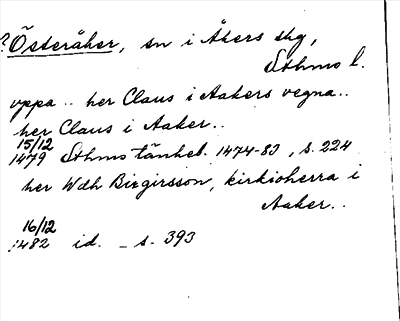 ?Österåker, sn i Åkers skg,
Sthms l.
uppa .. her Claus i Aakers vegna..
her Claus i Aaker..
15/12
1479 Sthms tänkeb. 1474-83, s. 224
her Wdh Birgirsson, kirkioherra i
Aaker..
16/12
1482 id. – s. 393